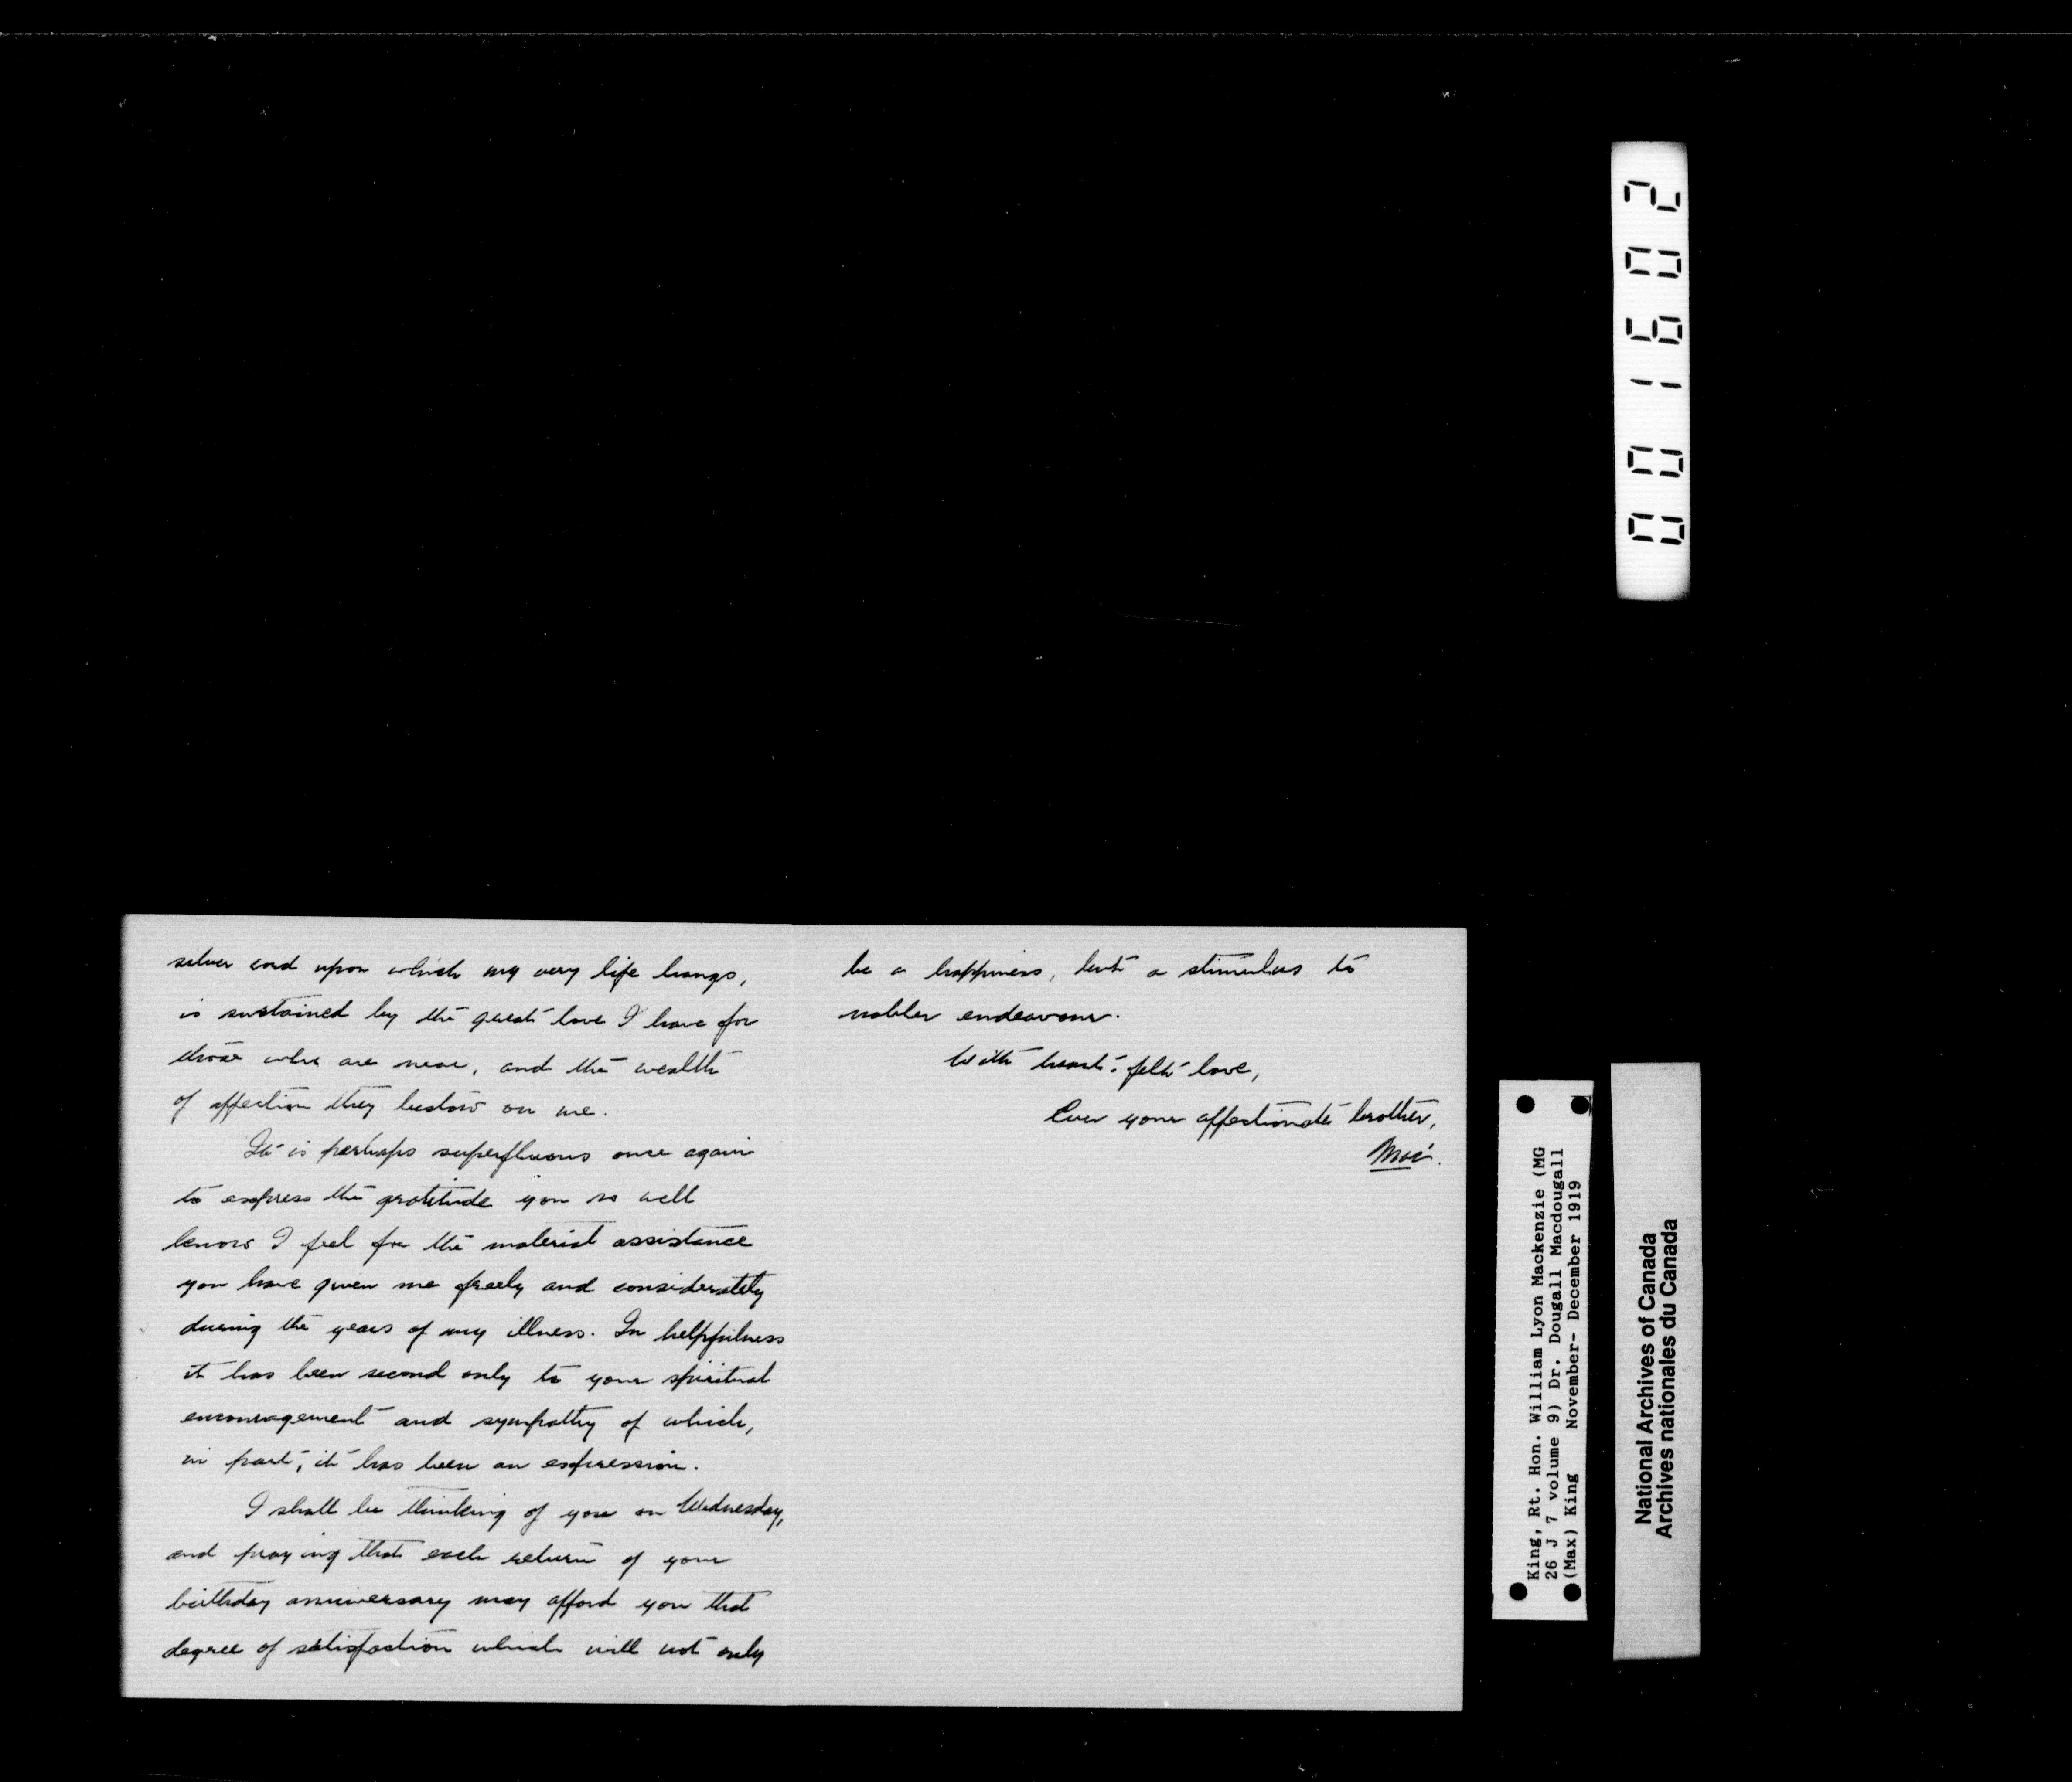 silver cord upon which my very life hangs,
is sustained by the great love I have for
those who are near, and the wealth
of affection they bestow on me.
It is perhaps superfluous once again
to express the gratitude you so well
know I feel for the material assistance
you have given me freely and considerately
during the years of my illness. In helpfulness
it has been second only to your spiritual
encouragement and sympathy of which,
in part, it has been an expression.
I shall be thinking of you on Wednesday,
and praying that each return of your
birthday anniversary may afford you that
degree of satisfaction which will not only
be a happiness, but a stimulus to
nobler endeavour.
With heart-felt love,
Ever your affectionate brother,
Max.
001602
King, Rt. Hon. William Lyon Mackenzie (MG
26 J 7 volume 9) Dr. Dougall Macdougall
(Max) King November- December 1919
National Archives of Canada
Archives nationales du Canada